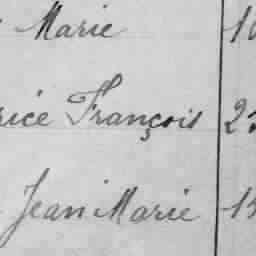 Marie 10
rice François 22
Jean Marie 15